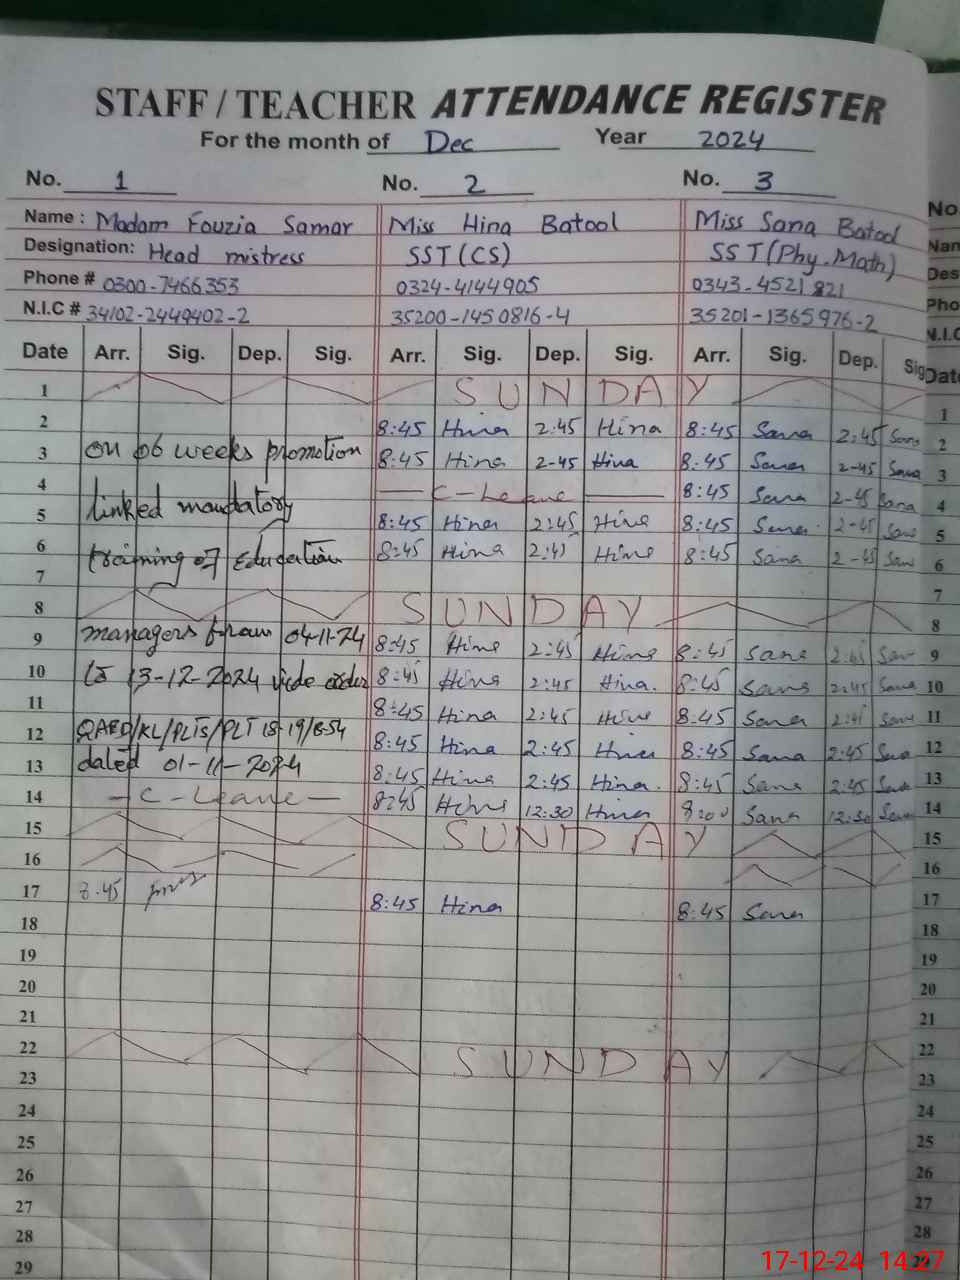 STAFF / TEACHER ATTENDANCE REGISTER
For the month of Dec Year 2024
No. 1 No. 2 No. 3 No.
Name : Madam Fouzia Samar Miss Hina Batool Miss Sana Batool Nam
Designation: Head mistress SST(CS) SST(Phy.Math) Des
Phone # 0300-7466353 0324-4144905 0343-4521821 Pho
N.I.C # 34102-2449402-2 35200-1450816-4 35201-1365976-2 N.I.C
Date Arr. Sig. Dep. Sig. Arr. Sig. Dep. Sig. Arr. Sig. Dep. Sig Date
1 SUNDAY 1
2 8:45 Hina 2:45 Hina 8:45 Sana 2:45 Sana 2
3 on 06 weeks promotion 8:45 Hina 2-45 Hina 8:45 Sana 2-45 Sana 3
4 linked mandatory C-Leave 8:45 Sana 2-45 Sana 4
5 8:45 Hina 2:45 Hina 8:45 Sana 2-45 Sana 5
6 training of Education 8:45 Hina 2:45 Hina 8:45 Sana 2-45 Sana 6
7 7
8 SUNDAY 8
9 managers from 04-11-24 8:45 Hina 2:45 Hina 8:45 Sana 2:45 Sana 9
10 to 13-12-2024 vide order 8:45 Hina 2:45 Hina. 8:45 Sana 2:45 Sana 10
11 8:45 Hina 2:45 Hina 8:45 Sana 2:45 Sana 11
12 8:45 Hina 2:45 Hina 8:45 Sana 2:45 Sana 12
13 dated 01-11-2024 8:45 Hina 2:45 Hina. 8:45 Sana 2:45 Sana 13
14 -C-Leave- 8:45 Hina 12:30 Hina 8:00 Sana 12:30 Sana 14
15 SUNDAY 15
16 16
17 8:45 8:45 Hina 8:45 Sana 17
18 18
19 19
20 20
21 21
22 SUNDAY 22
23 23
24 24
25 25
26 26
27 27
28 28
29 29
17-12-24 14:27